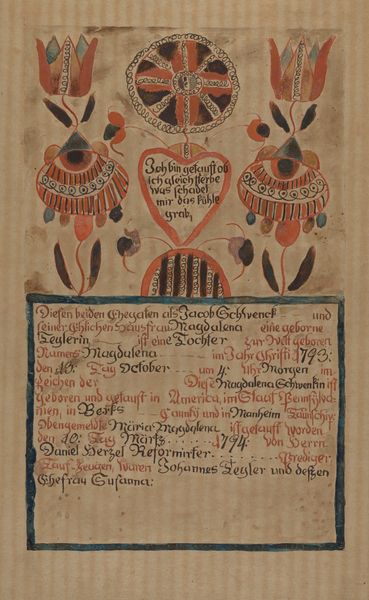 Ich bin getauft ob
ich gleich sterbe
was schadet
mir das kühle
grab,
Diesen beiden Ehegaten als Jacob Schwenck und
seiner Ehlichen Hausfrau Magdalena eine geborne
Teglerin ist eine Tochter zur Welt geboren
Namens Magdalena im Jahr Christi 1793:
den 10. Tag October um 4: Uhr Morgen im
zeichen der Diese Magdalena Schwenkin ist
geboren und getauft in America, im Staat Pennsylva-
nien, in Berks Caunty und in Manheim Taunschip:
Obengemeldte Maria Magdalena ist getauft worden
den 10: Tag Märtz 1794 Von Herrn
Daniel Herzel Reformirter Prediger
Tauf-Zeugen, Waren Johannes Tegler und deßen
Ehefrau Susanna: